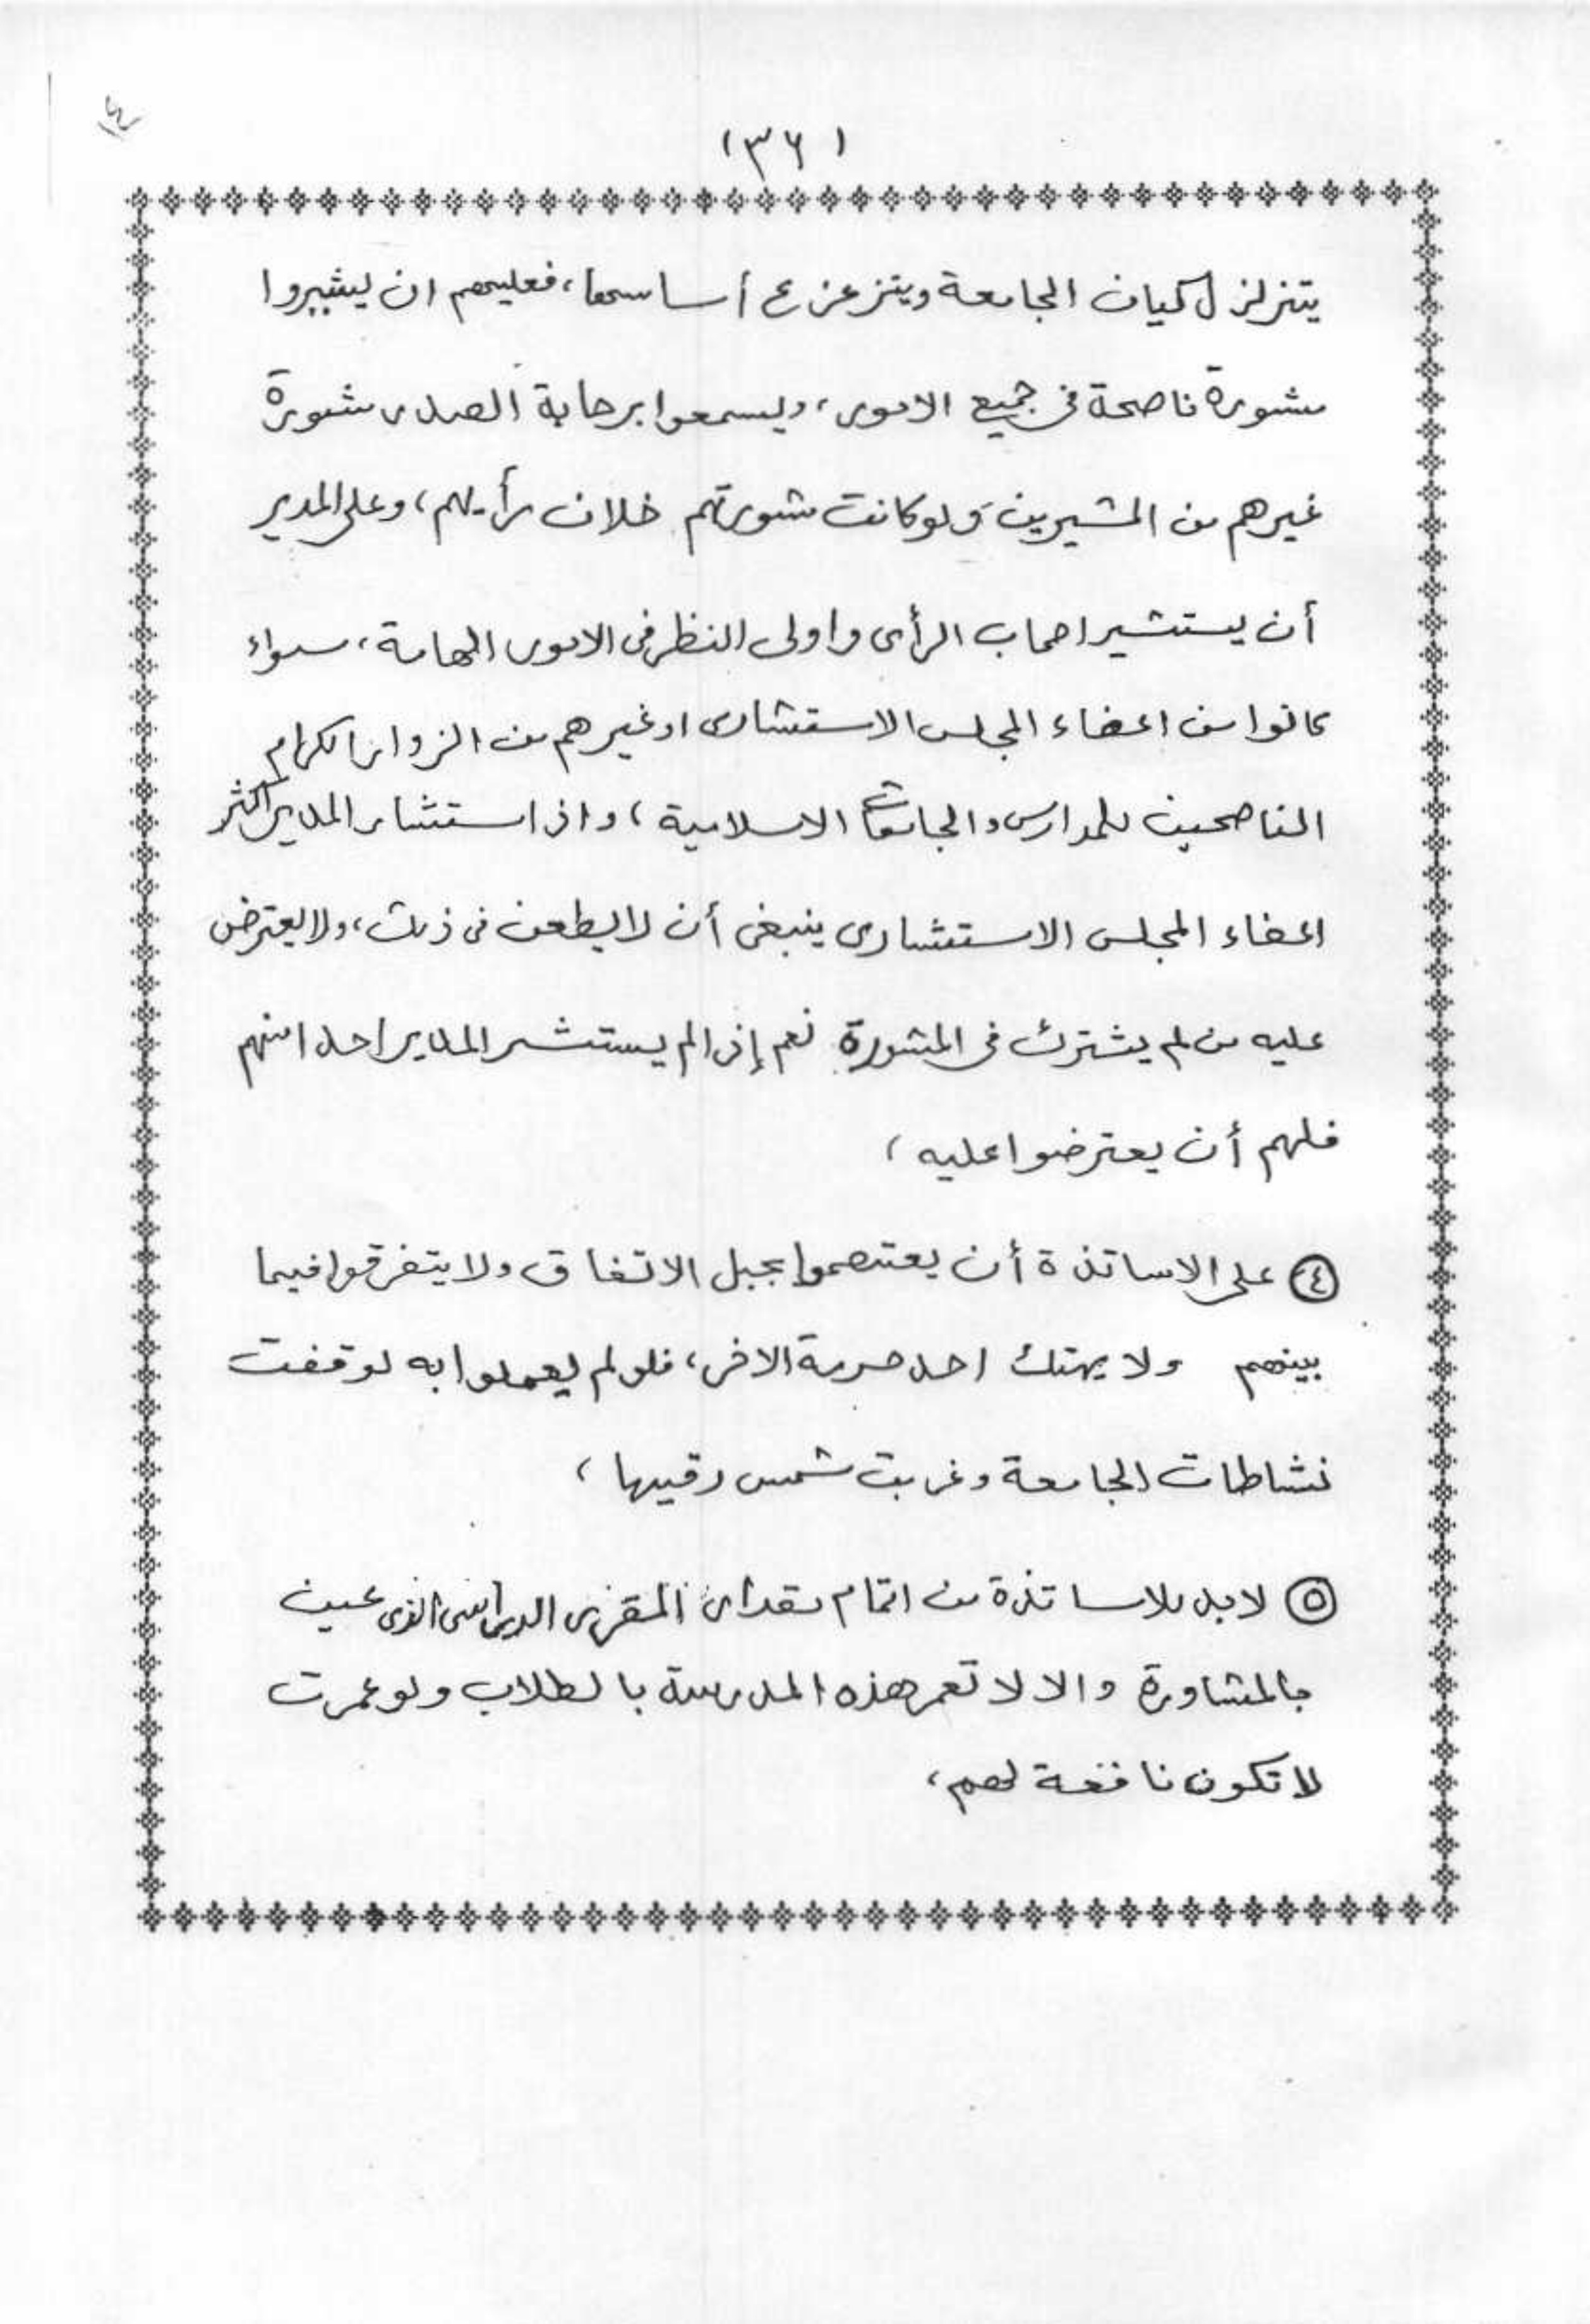 (٣٦)
يتزلزل كيان الجامعة ويتزعزع أساسها، فعليهم ان يشيروا
مشورة ناصحة في جميع الامور، وليسمعوا برحابة الصدر مشورة
غيرهم من المشيرين ولو كانت مشورتهم خلاف رأيهم، وعلى المدير
أن يستشير اصحاب الرأى واولى النظر فى الامور الهامة، سواء
كانوا من اعضاء المجلس الاستشارى او غيرهم من الزوار الكرام
الناصحين للمدارس والجامعات الاسلامية، واذا استشار المدير اكثر
اعضاء المجلس الاستشارى ينبغى أن لا يطعن فى ذلك، ولا يعترض
عليه من لم يشترك فى المشورة نعم إذا لم يستشر المدير احدا منهم
فلهم أن يعترضوا عليه،
④ على الاساتذة أن يعتصموا بحبل الاتفاق ولا يتفرقوا فيما
بينهم ولا يهتك احد حرمة الاخر، فلو لم يعملوا به لوقفت
نشاطات الجامعة وغربت شمس رقيها،
⑤ لابد للاساتذة من اتمام مقدار المقرر الدراسى الذى عين
بالمشاورة والا لا تعمر هذه المدرسة بالطلاب ولو عمرت
لا تكون نافعة لهم،